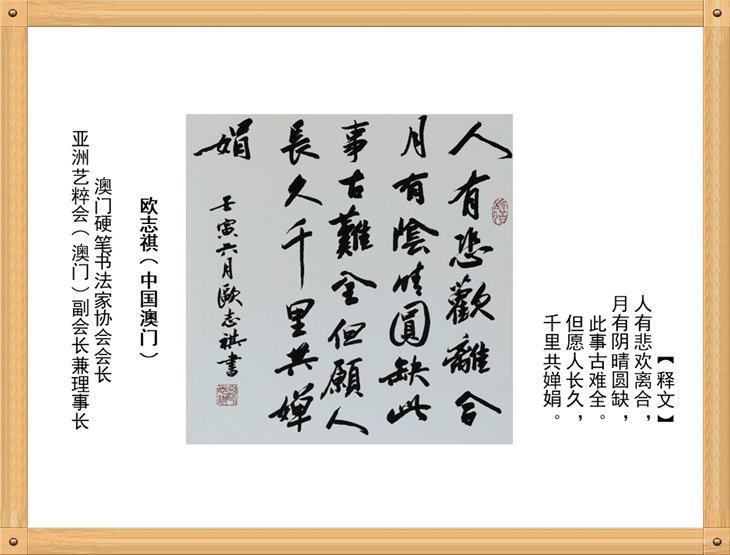 【释文】
人有悲欢离合，
月有阴晴圆缺，
此事古难全。
但愿人长久，
千里共婵娟。
人有悲歡離合
月有陰晴圓缺此
事古難全但願人
長久千里共嬋
娟
壬寅六月歐志祺書
欧志祺（中国澳门）
澳门硬笔书法家协会会长
亚洲艺粹会（澳门）副会长兼理事长